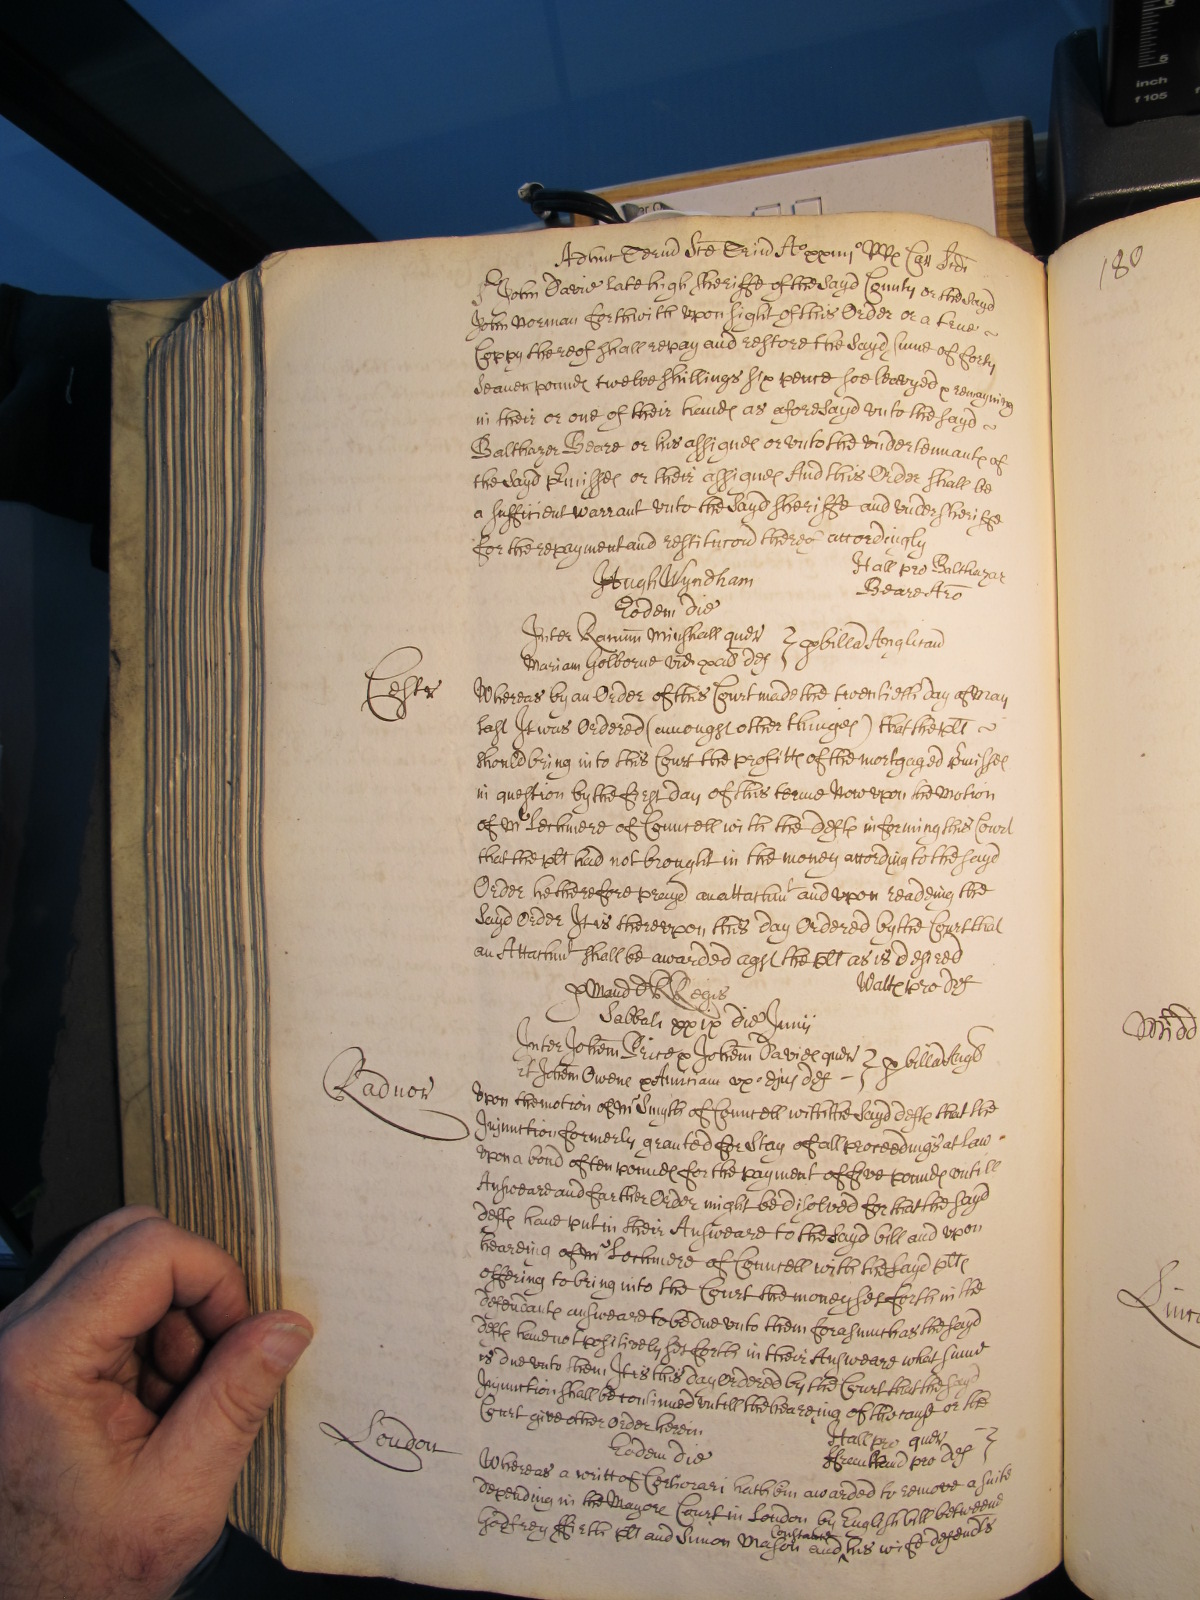 Adhuc Termd Ste Trin Ao xxiiijo RRx Car Sedi
John Davie late high Sheriffe of the Sayd County or the Sayd
John Norman forthwith upon sight of this Order or a true
Coppy thereof shall repay and restore the Sayd Sume of forty
Seaven pounds twelve shillings six pence soe leavyed & remayning
in their or one of their hands as aforesayd unto the sayd
Balthazer Beare or his assignes or unto the undertennants of
the Sayd pmisses or their assignes And this Order shall be
a sufficient warrant unto the Sayd Sheriffe and undersheriffe
for the repayment and restitucon thereof accordingly
Hall pro Balthazar
Beare Aro
Hugh Wyndham
Eodem die
Inter Minshall quer
Mariam Golborne vid def
p billa Anglican
Cestr
Whereas by an Order of this Court made the twentieth day of may
last It was Ordered (amongst other things) that the plt
should bring into this Court the profitts of the mortgaged pmisses
in question by the first day of this terme Now upon the Motion
of Mr Lechmere of Councell with the defts informing this Court
that the plt had not brought in the money according to the sayd
Order he therefore prayd an attachmt and upon reading the
Sayd Order It is thereupon this day Ordered by the Court that
an Attachmt shall be awarded agst the plt as is desired
Walts pro def
p Mand Regis
Sabbati xxix die Junij
Inter Johem Price & Johem Davies quer
et Johem Owens & ux ejus def
p billa Angl
Radnor
Upon the motion of Mr Smyth of Councell with the Sayd defts that the
Injunction formerly granted for Stay of all proceedings at Law
upon a bond of ten pounds for the payment of five pounds untill
Answeare and farther Order might be disolved for that the sayd
defts have put in their Answeare to the Sayd bill and upon
heareing of Mr Lechmere of Councell with the Sayd plts
offering to bring into the Court the money set forth in the
defendants answeare to be due unto them forasmuch as the sayd
defts have not positively set forth in their Answeare what sume
is due unto them It is this day Ordered by the Court that the sayd
Injunction shall be continued untill the heareing of the cause or the
Court give other Order herein
Hall pro quer
pro def
Eodem die
London
Whereas a writt of Certiorari hath bin awarded to remove a suite
depending in the Mayors Court in London by English bill betweene
Godfrey ffirth plt and Simon Mason and Constance his wife defends
180
Midd